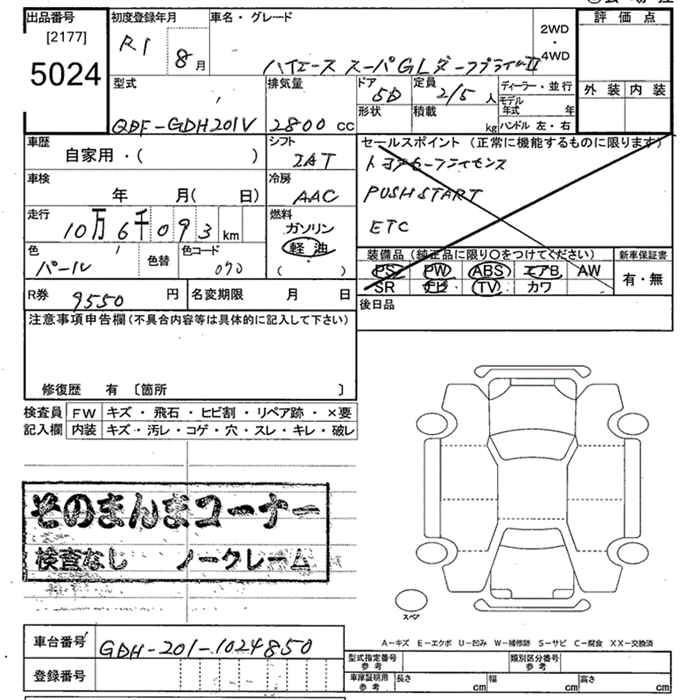 出品番号
[2177]
5024
初度登録年月
R1 8 月
車名・グレード
ハイエース スーパGL ダークプライムⅡ
2WD
・
4WD
評価点
外装 内装
型式
QDF-GDH201V
排気量
2800 cc
ドア
5D
形状
定員
2/5 人
積載
kg
ディーラー・並行
モデル年式 年
ハンドル 左・右
車歴
自家用・( )
シフト
IAT
セールスポイント(正常に機能するものに限ります)
トヨタセーフティセンス
PUSH START
ETC
車検
年 月( 日)
冷房
AAC
走行
10万6千093 km
燃料
ガソリン
軽油
( )
色
パール
色替
色コード
070
装備品(純正品に限り〇をつけてください)
PS PW ABS エアB AW
SR ナビ TV カワ
新車保証書
有・無
R券 9550 円
名変期限 月 日
後日品
注意事項申告欄(不具合内容等は具体的に記入して下さい)
修復歴 有 〔箇所 〕
検査員 FW キズ・飛石・ヒビ割・リペア跡・×要
記入欄 内装 キズ・汚レ・コゲ・穴・スレ・キレ・破レ
そのまんまコーナー
検査なし ノークレーム
スペア
A-キズ E-エクボ U-凹み W-補修跡 S-サビ C-腐食 XX-交換済
車台番号 GDH-201-1024850
登録番号
型式指定番号
参考
類別区分番号
参考
車庫証明用
参考
長さ cm 幅 cm 高さ cm